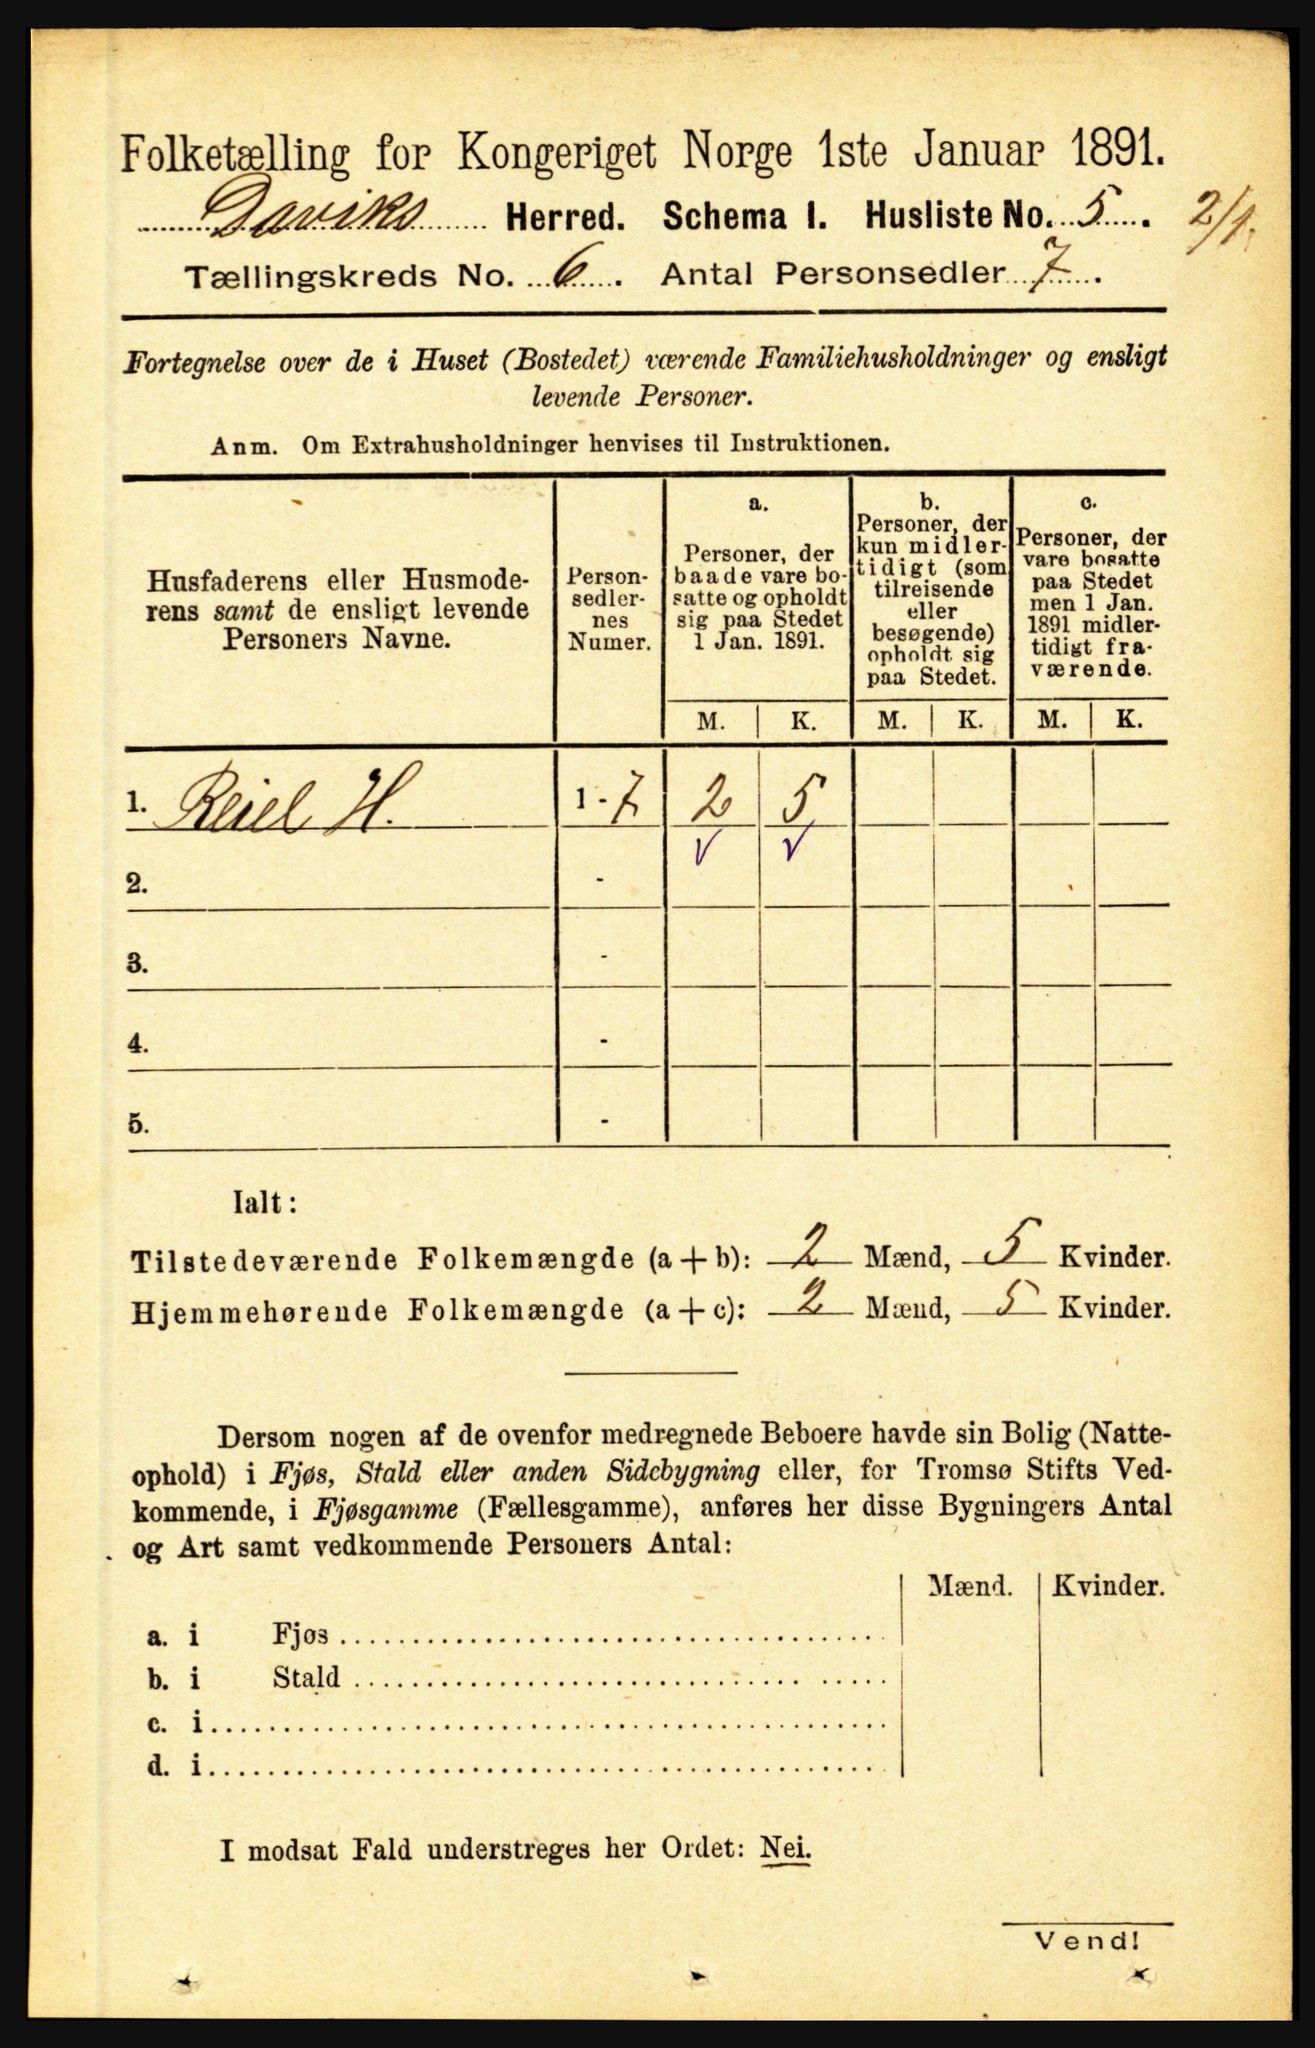 Folketælling for Kongeriget Norge 1ste Januar 1891.
Daviks Herred. Schema 1. Husliste No. 5. 2/1.
Tællingskreds No. 6. Antal Personsedler 7.
Fortegnelse over de i Huset (Bostedet) værende Familiehusholdninger og ensligt
levende Personer.
Anm. Om Extrahusholdninger henvises til Instruktionen.
Husfaderens eller Husmode-
rens samt de ensligt levende
Personers Navne.
Person-
sedler-
nes
Numer.
a.
Personer, der
baade vare bo-
satte og opholdt
sig paa Stedet
1 Jan. 1891.
b.
Personer, der
kun midler-
tidigt (som
tilreisende
eller
besøgende)
opholdt sig
paa Stedet.
c.
Personer, der
vare bosatte
paa Stedet
men 1 Jan.
1891 midler-
tidigt fra-
værende.
M. K. M. K. M. K.
1. Reiel H. 1 - 7 2 5
2. -
3. -
4. -
5. -
Ialt:
Tilstedeværende Folkemængde (a + b): 2 Mænd, 5 Kvinder.
Hjemmehørende Folkemængde (a + c): 2 Mænd, 5 Kvinder.
Dersom nogen af de ovenfor medregnede Beboere havde sin Bolig (Natte-
ophold) i Fjøs, Stald eller anden Sidebygning eller, for Tromsø Stifts Ved-
kommende, i Fjøsgamme (Fællesgamme), anføres her disse Bygningers Antal
og Art samt vedkommende Personers Antal:
Mænd. Kvinder.
a. i Fjøs
b. i Stald
c. i
d. i
I modsat Fald understreges her Ordet: Nei.
Vend!